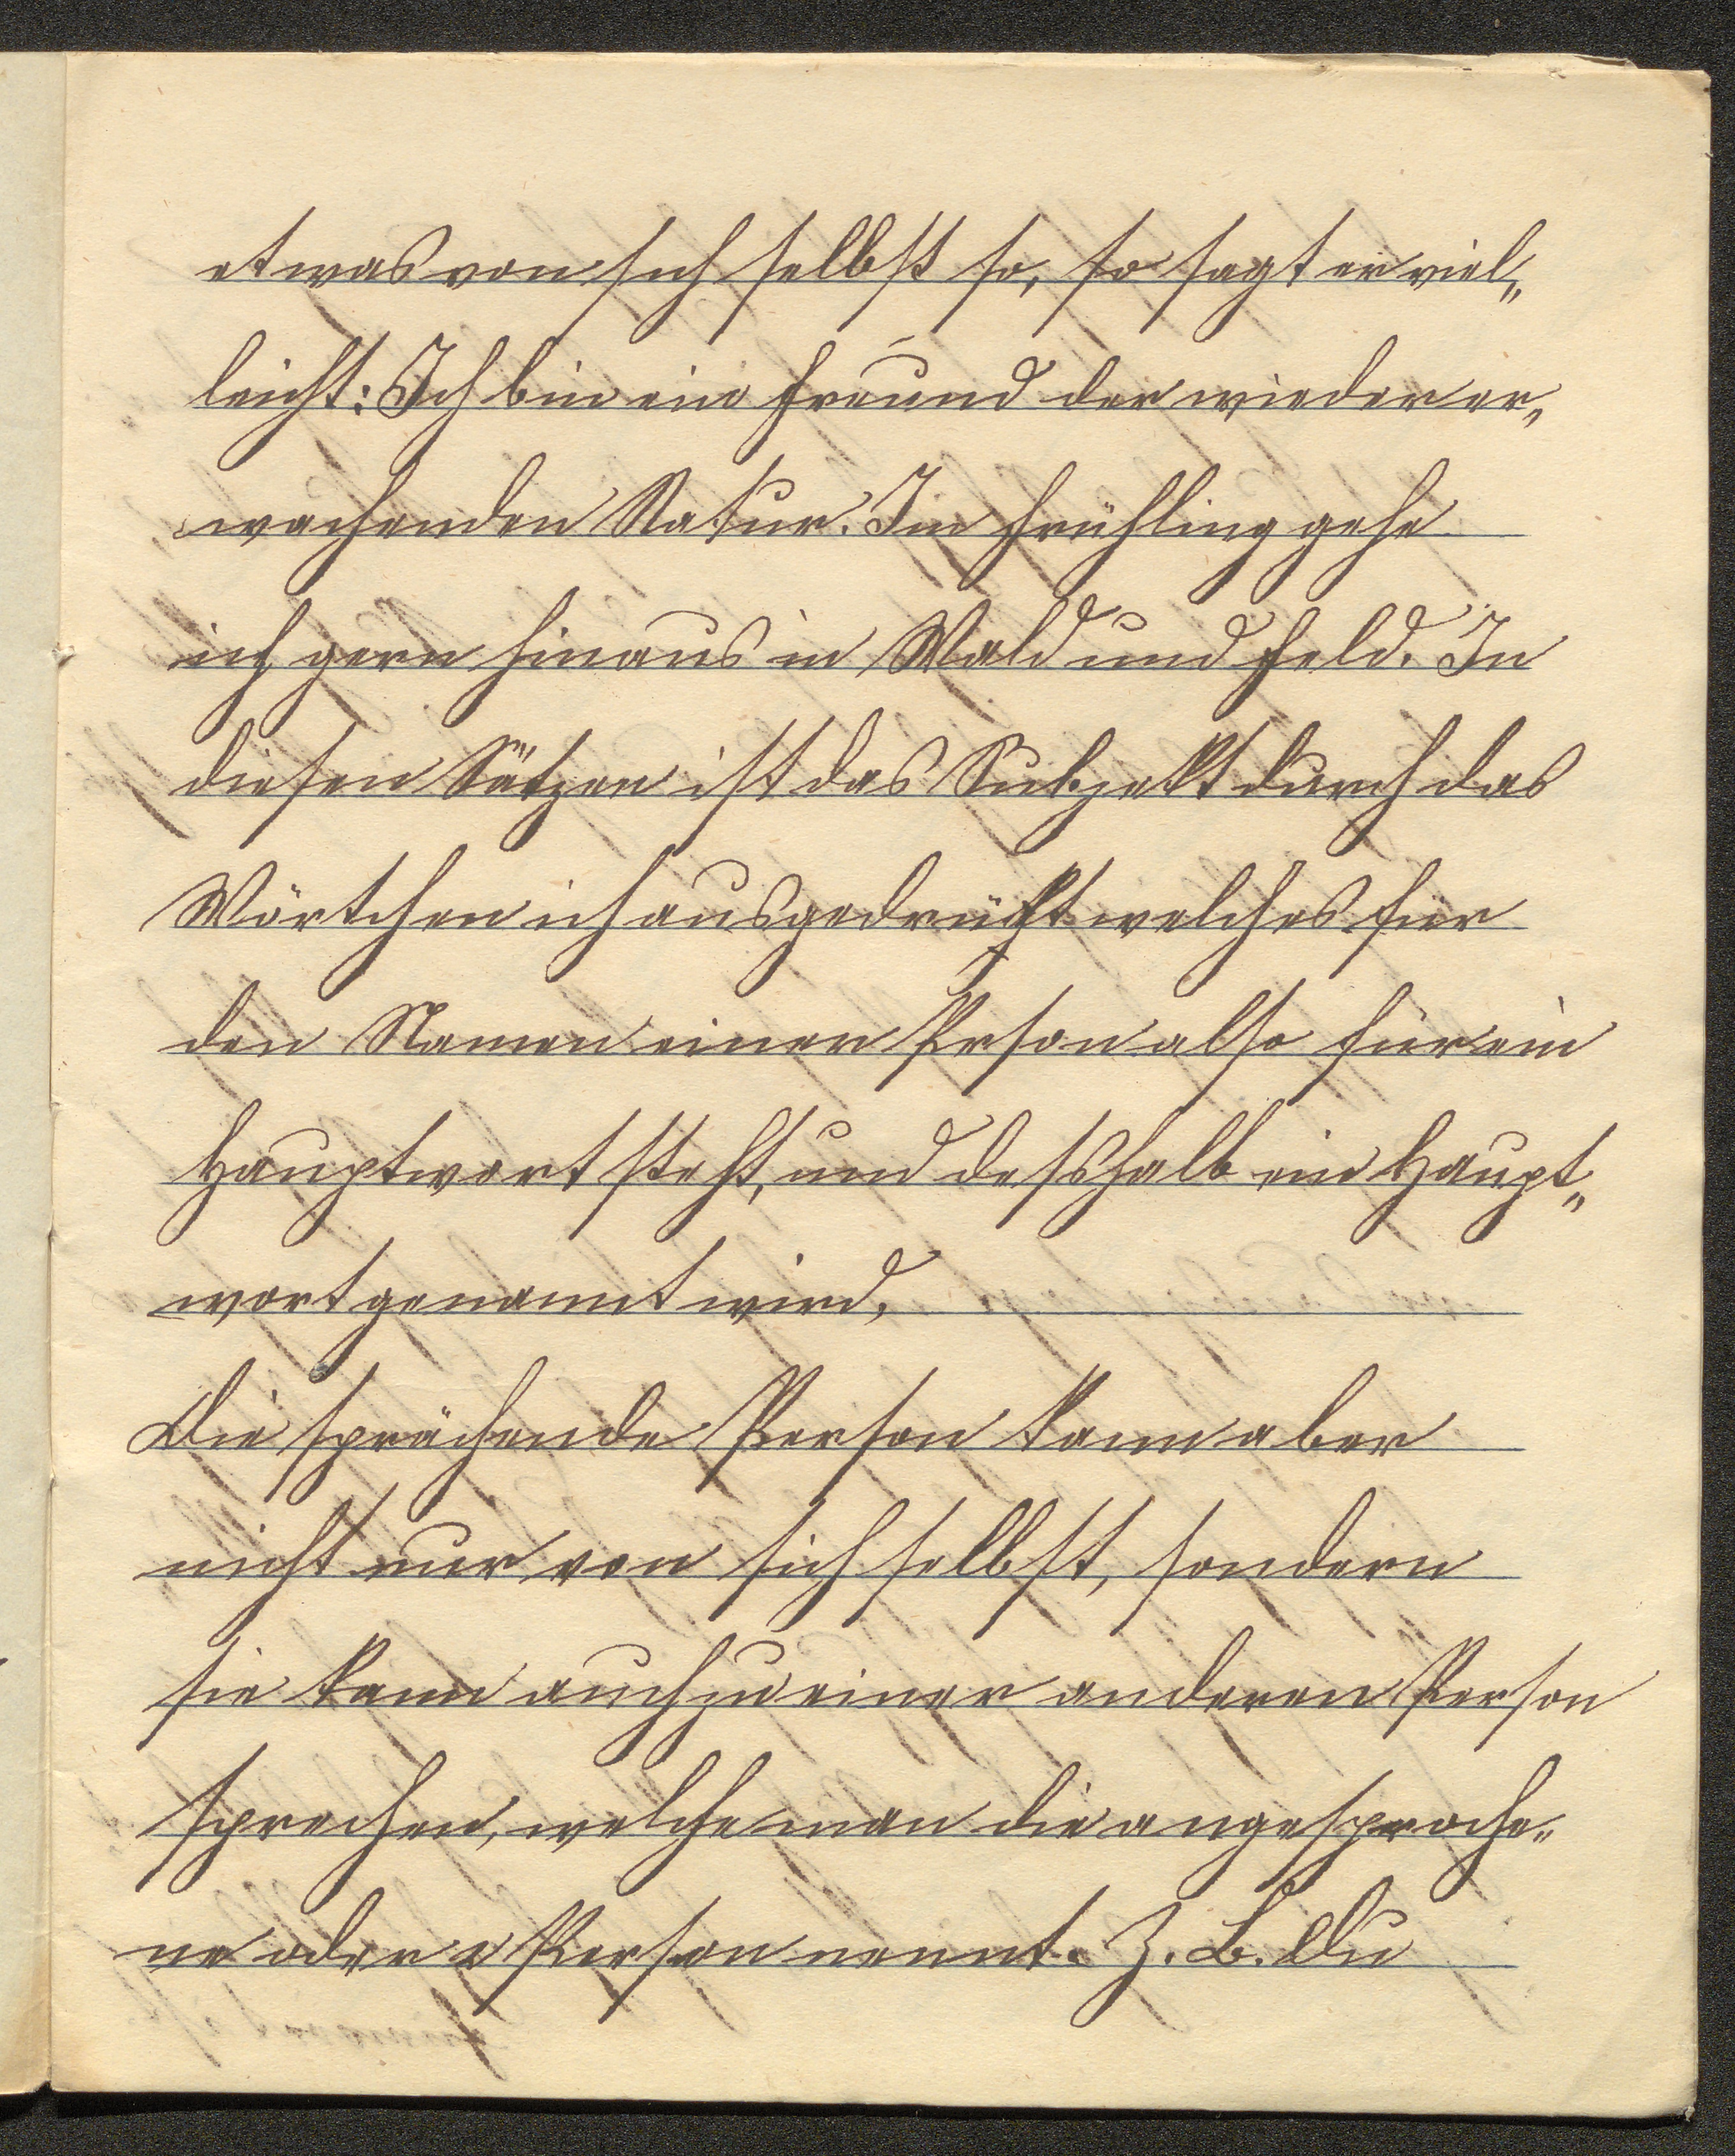 etwas von sich selbst so, so sagt er viel„
leicht: Ich bin ein Freund der wieder er„
wachenden Natur. Im Frühling gehe
ich gern hinaus in Wald und Feld. In
diesen Sätzen ist das Subjekt durch das
Wörtchen ich ausgedrückt welches für
den Namen einer Prson also für ein
Hauptwort steht, und desshalb ein Haupt„
wort genannt wird.
Die sprächende Person kann aber
nicht nur von sich selbst, sondern
sie kann auch zu einer anderen Person
sprechen, welche man die angesproche„
ne oder 2 Person nennt. Z. B. Du